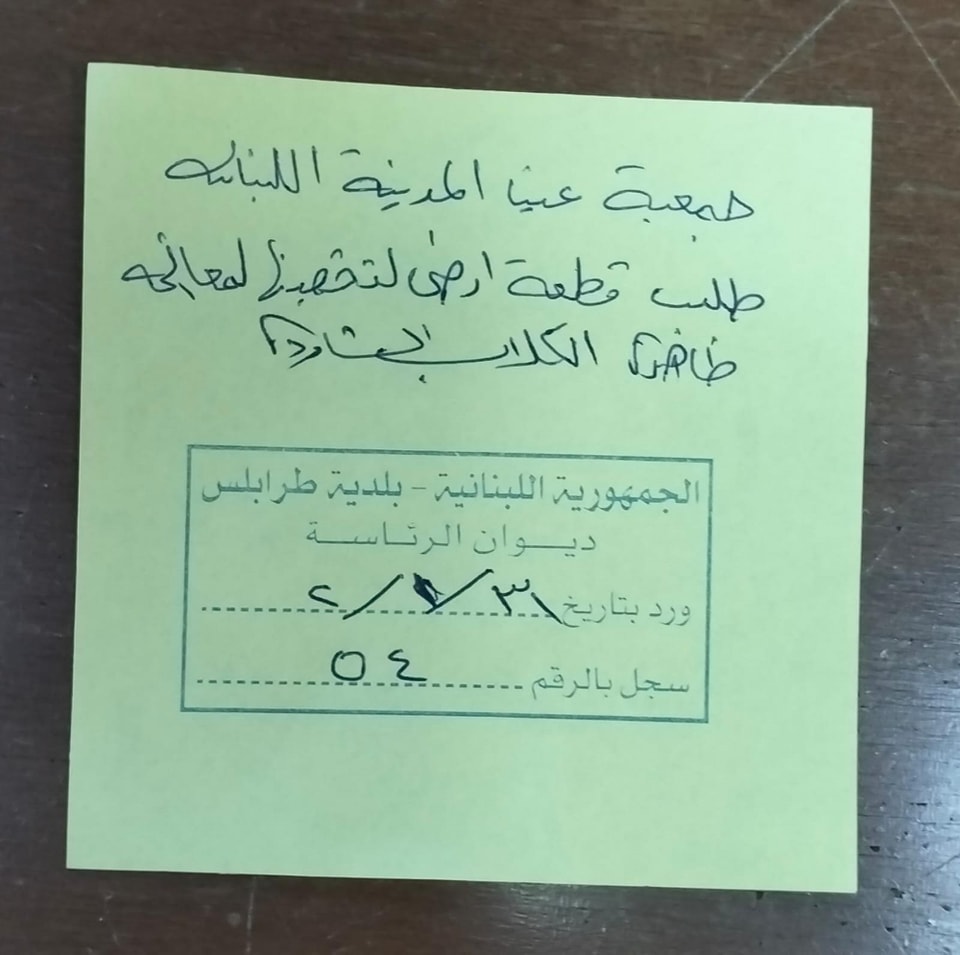 جمعية عينا المدينة اللبنانية
طلب قطعة ارض لتخصيصها لمعالجة
ظاهرة الكلاب الشاردة
الجمهورية اللبنانية - بلدية طرابلس
ديوان الرئاسة
ورد بتاريخ
سجل بالرقم ٥٤